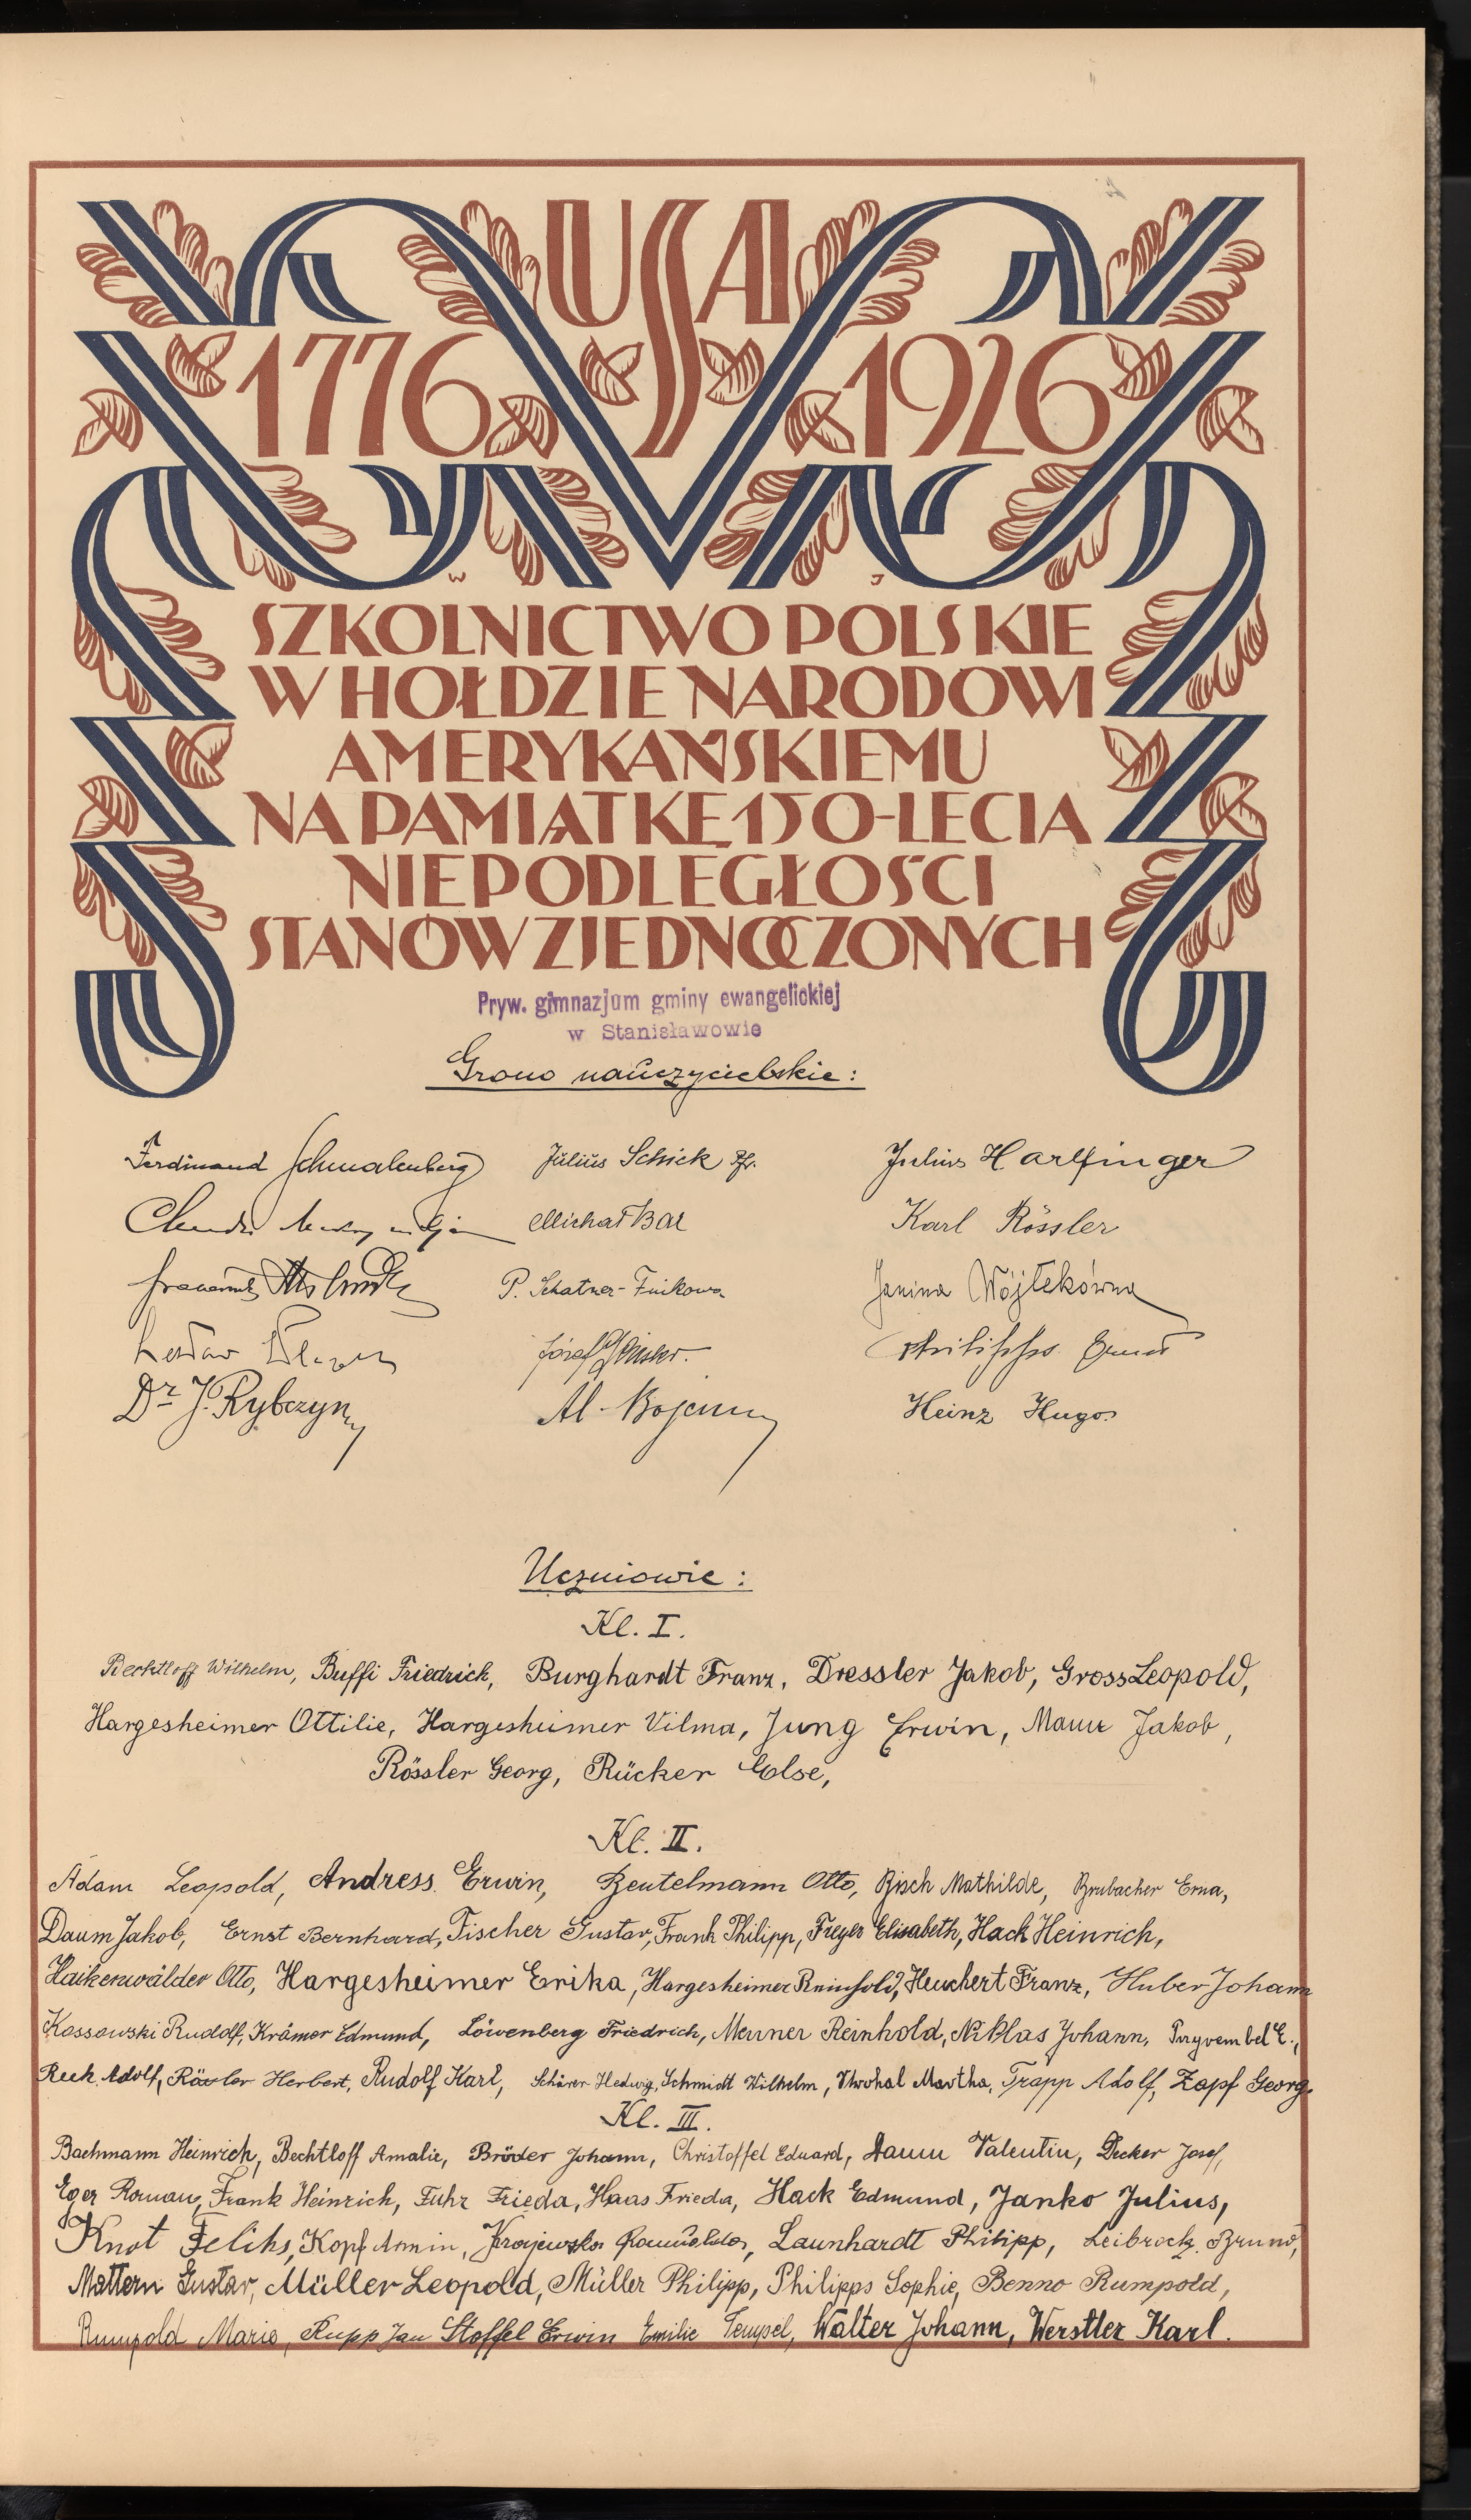 USA
1776 1926
W J
SZKOLNICTWO POLSKIE
W HOŁDZIE NARODOWI
AMERYKAŃSKIEMU
NA PAMIĄTKĘ 150-LECIA
NIEPODLEGŁOŚCI
STANÓW ZJEDNOCZONYCH
Pryw. gimnazjum gminy ewangelickiej
w Stanisławowie
Grono nauczycielskie:
Ferdinand Schmalenberg Julius Schick Pfr. Julius Harlfinger
Michał Bal Karl Rössler
P. Schatner-Finkowa Janina Wójtekówna
Józef Philipps Ernst
Dr J. Rybczyn Al. Heinz Hugo
Uczniowie:
Kl. I.
Bechtloff Wilhelm, Buffi Friedrich, Burghardt Franz, Dressler Jakob, Gross Leopold,
Hargesheimer Ottilie, Hargesheimer Vilma, Jung Erwin, Mauer Jakob,
Rössler Georg, Rücker Else,
Kl. II.
Adam Leopold, Andress Erwin, Beutelmann Otto, Bisch Mathilde, Brubacher Erna,
Daum Jakob, Ernst Bernhard, Fischer Gustav, Frank Philipp, Freyer Elisabeth, Hack Heinrich,
Haikenwälder Otto, Hargesheimer Erika, Hargesheimer Reinhold, Heuchert Franz, Huber Johann
Kossowski Rudolf, Krämer Edmund, Löwenberg Friedrich, Menner Reinhold, Niklas Johann, E.,
Reck Adolf, Rössler Herbert, Rudolf Karl, Schärer Hedwig, Schmidt Wilhelm, Martha, Trapp Adolf, Zapf Georg.
Kl. III.
Bachmann Heinrich, Bechtloff Amalie, Bröder Johann, Christoffel Eduard, Daum Valentin, Decker Josef,
Eger Roman, Frank Heinrich, Fuhr Frieda, Haas Frieda, Hack Edmund, Janko Julius,
Knot Feliks, Kopf Armin, Krajewska Romualda, Launhardt Philipp, Leibrock Bruno,
Mattern Gustav, Müller Leopold, Müller Philipp, Philipps Sophie, Benno Rumpold,
Rumpold Marie, Rupp Jan Stoffel Erwin Emilie Tempel, Walter Johann, Werstler Karl.